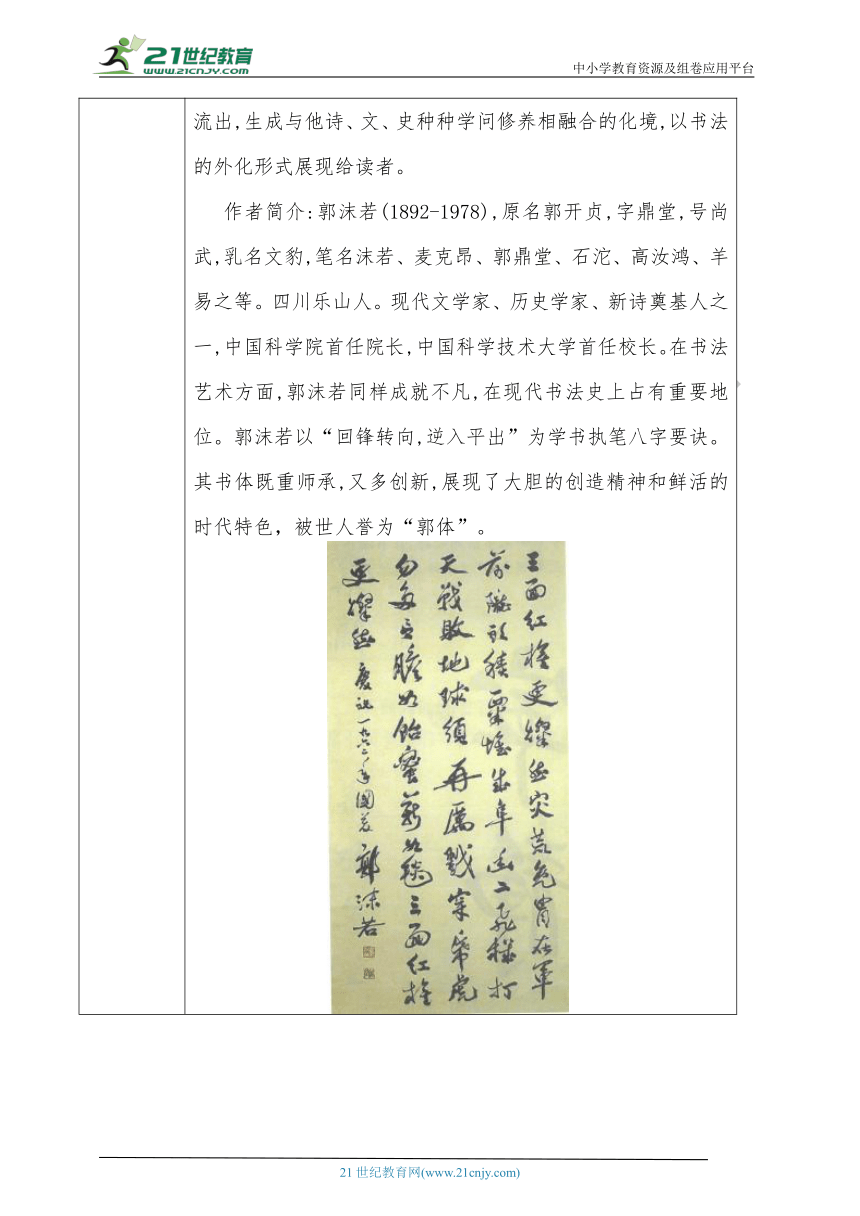 21世纪教育
www.21cnjy.com
中小学教育资源及组卷应用平台
流出,生成与他诗、文、史种种学问修养相融合的化境,以书法
的外化形式展现给读者。
作者简介:郭沫若(1892-1978),原名郭开贞,字鼎堂,号尚
武,乳名文豹,笔名沫若、麦克昂、郭鼎堂、石沱、高汝鸿、羊
易之等。四川乐山人。现代文学家、历史学家、新诗奠基人之
一,中国科学院首任院长,中国科学技术大学首任校长。在书法
艺术方面,郭沫若同样成就不凡,在现代书法史上占有重要地
位。郭沫若以“回锋转向,逆入平出”为学书执笔八字要诀。
其书体既重师承,又多创新,展现了大胆的创造精神和鲜活的
时代特色，被世人誉为“郭体”。
三面红旗更灿然灾荒免胄在军
前陇头积粟堆成阜 二飞机打
天战败地球须再厉戮 虎
勿多言胆如饴蜜薪如毯三面红旗
更灿然 庆祝一九六二年国庆 郭沫若
21世纪教育网(www.21cnjy.com)